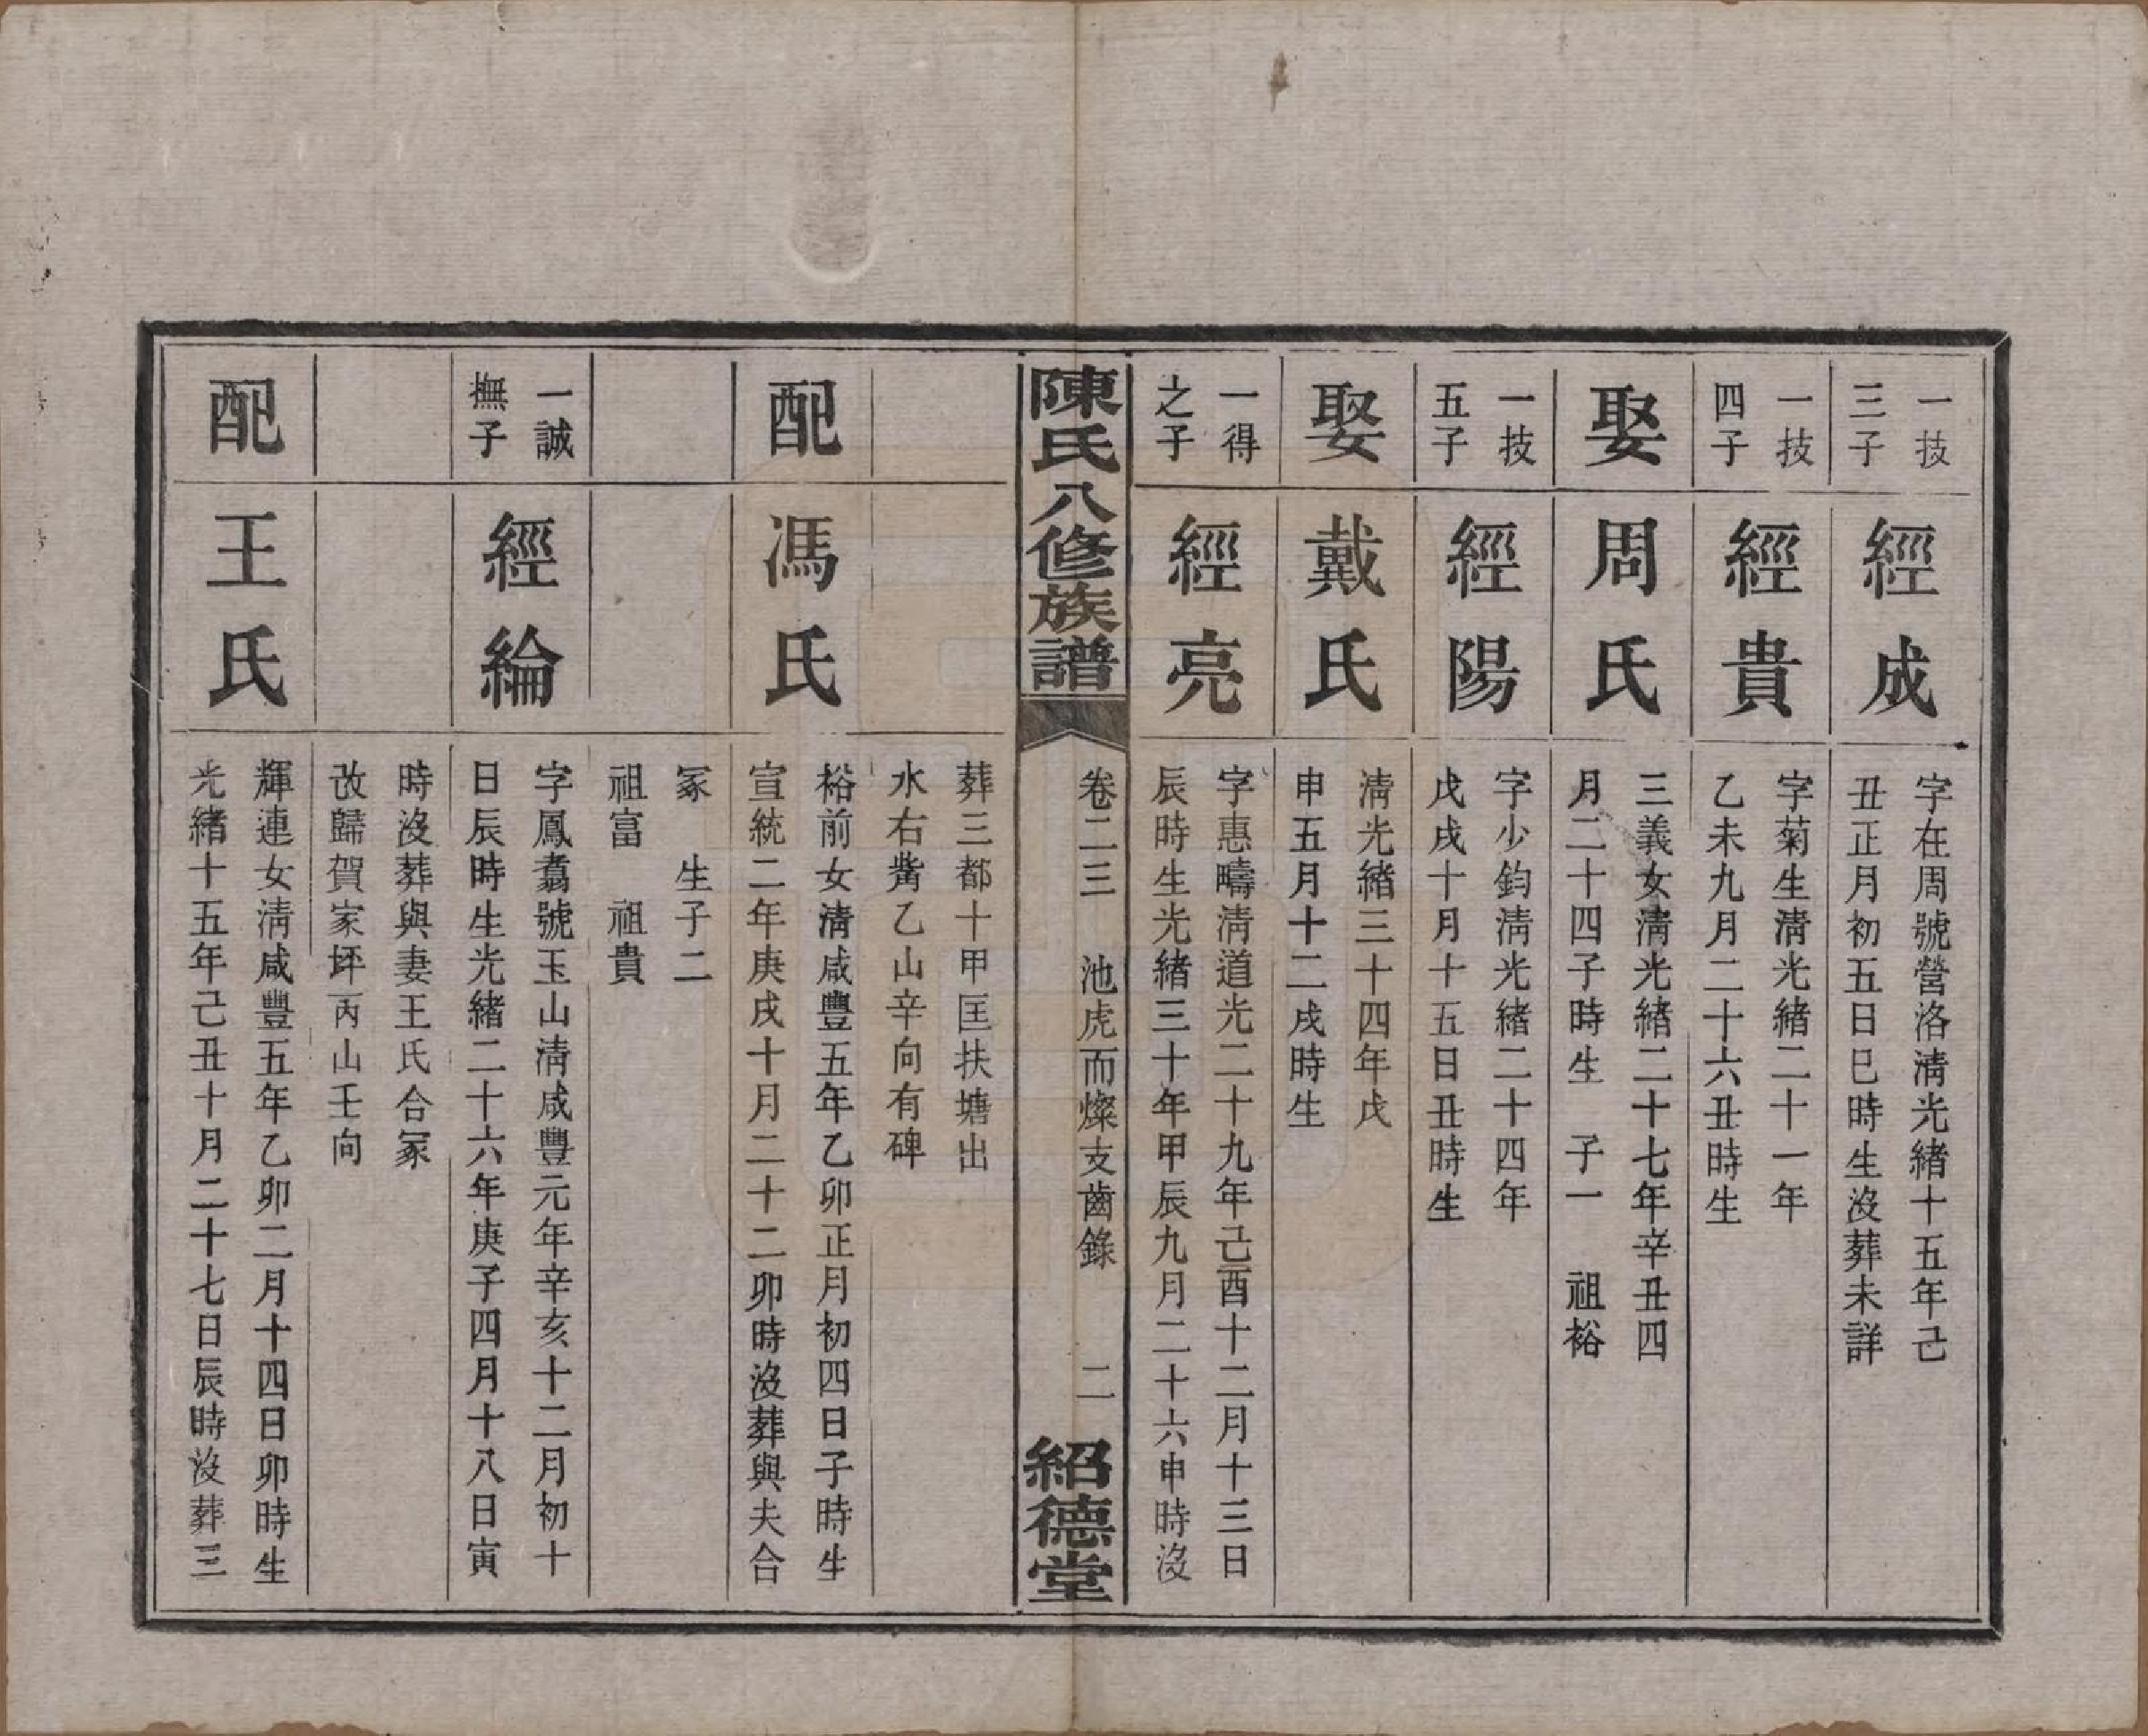 一技
三子
經成
字在周號營洛淸光緒十五年己
丑正月初五日巳時生沒葬未詳
一技
四子
經貴
字菊生淸光緒二十一年
乙未九月二十六丑時生
娶
周氏
三義女淸光緒二十七年辛丑四
月二十四子時生　子一　祖裕
一技
五子
經陽
字少鈞淸光緒二十四年
戊戌十月十五日丑時生
娶
戴氏
淸光緒三十四年戊
申五月十二戌時生
一得
之子
經亮
字惠疇淸道光二十九年己酉十二月十三日
辰時生光緒三十年甲辰九月二十六申時沒
陳氏八修族譜
卷二三　池虎而燦支齒錄　二
紹德堂
葬三都十甲匡扶塘出
水右觜乙山辛向有碑
配
馮氏
裕前女淸咸豐五年乙卯正月初四日子時生
宣統二年庚戌十月二十二卯時沒葬與夫合
冢　生子二
祖富　祖貴
一誠
撫子
經綸
字鳳翥號玉山淸咸豐元年辛亥十二月初十
日辰時生光緒二十六年庚子四月十八日寅
時沒葬與妻王氏合冢
改歸賀家坪丙山壬向
配
王氏
輝連女淸咸豐五年乙卯二月十四日卯時生
光緒十五年己丑十月二十七日辰時沒葬三